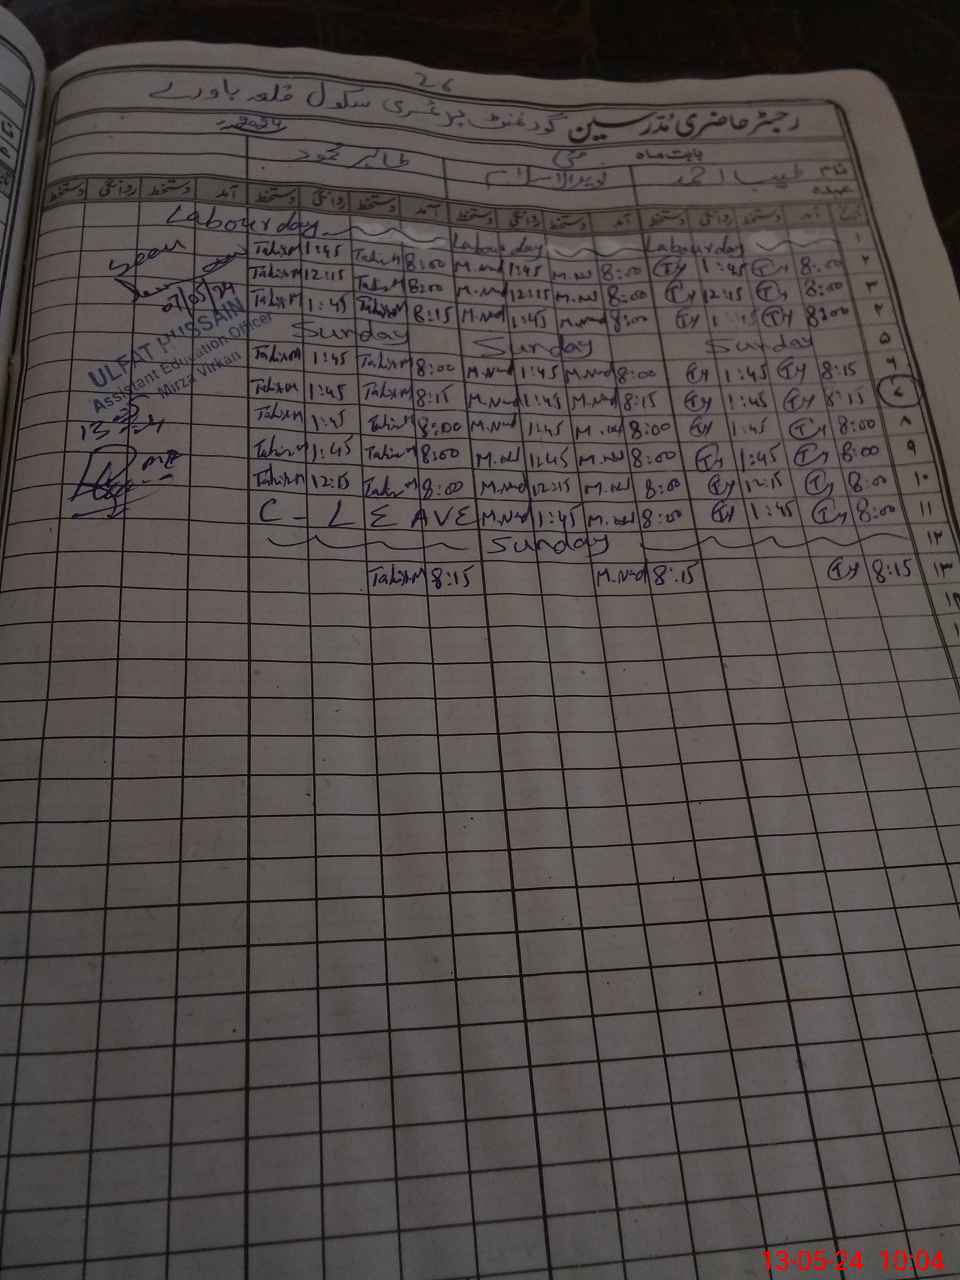 26
رجسٹر حاضری مدرسین گورنمنٹ پرائمری سکول قلعہ باورے
بابت ماہ مئی 2024
نام طیب احمد طاہر محمود
عہدہ
تاریخ آمد دستخط روانگی دستخط آمد دستخط روانگی دستخط آمد دستخط روانگی دستخط آمد دستخط روانگی دستخط
۱ Labour day Labour day Labour day
۲ 8:00 TH 1:45 TH 8:00 M.Nad 1:45 M.Nad 8:00 Tahir M 1:45 Tahir M
۳ 8:00 TH 12:15 TH 8:00 M.Nad 12:15 M.Nad 8:00 Tahir M 12:15 Tahir M
۴ 8:00 TH 1:45 TH 8:00 M.Nad 1:45 M.Nad 8:15 Tahir M 1:45 Tahir M
۵ Sunday Sunday Sunday
۶ 8:15 TH 1:45 TH 8:00 M.Nad 1:45 M.Nad 8:00 Tahir M 1:45 Tahir M
۷ 8:15 TH 1:45 TH 8:15 M.Nad 1:45 M.Nad 8:15 Tahir M 1:45 Tahir M
۸ 8:00 TH 1:45 TH 8:00 M.Nad 1:45 M.Nad 8:00 Tahir M 1:45 Tahir M
۹ 8:00 TH 1:45 TH 8:00 M.Nad 1:45 M.Nad 8:00 Tahir M 1:45 Tahir M
۱۰ 8:00 TH 12:15 TH 8:00 M.Nad 12:15 M.Nad 8:00 Tahir M 12:15 Tahir M
۱۱ 8:00 TH 1:45 TH 8:00 M.Nad 1:45 M.Nad C-LEAVE
۱۲ Sunday
۱۳ 8:15 TH 8:15 M.Nad 8:15 Tahir M
Seen
07/05/24
ULFAT HUSSAIN
Assistant Education Officer
Mirza Virkan
13-5-24
13-05-24 10:04